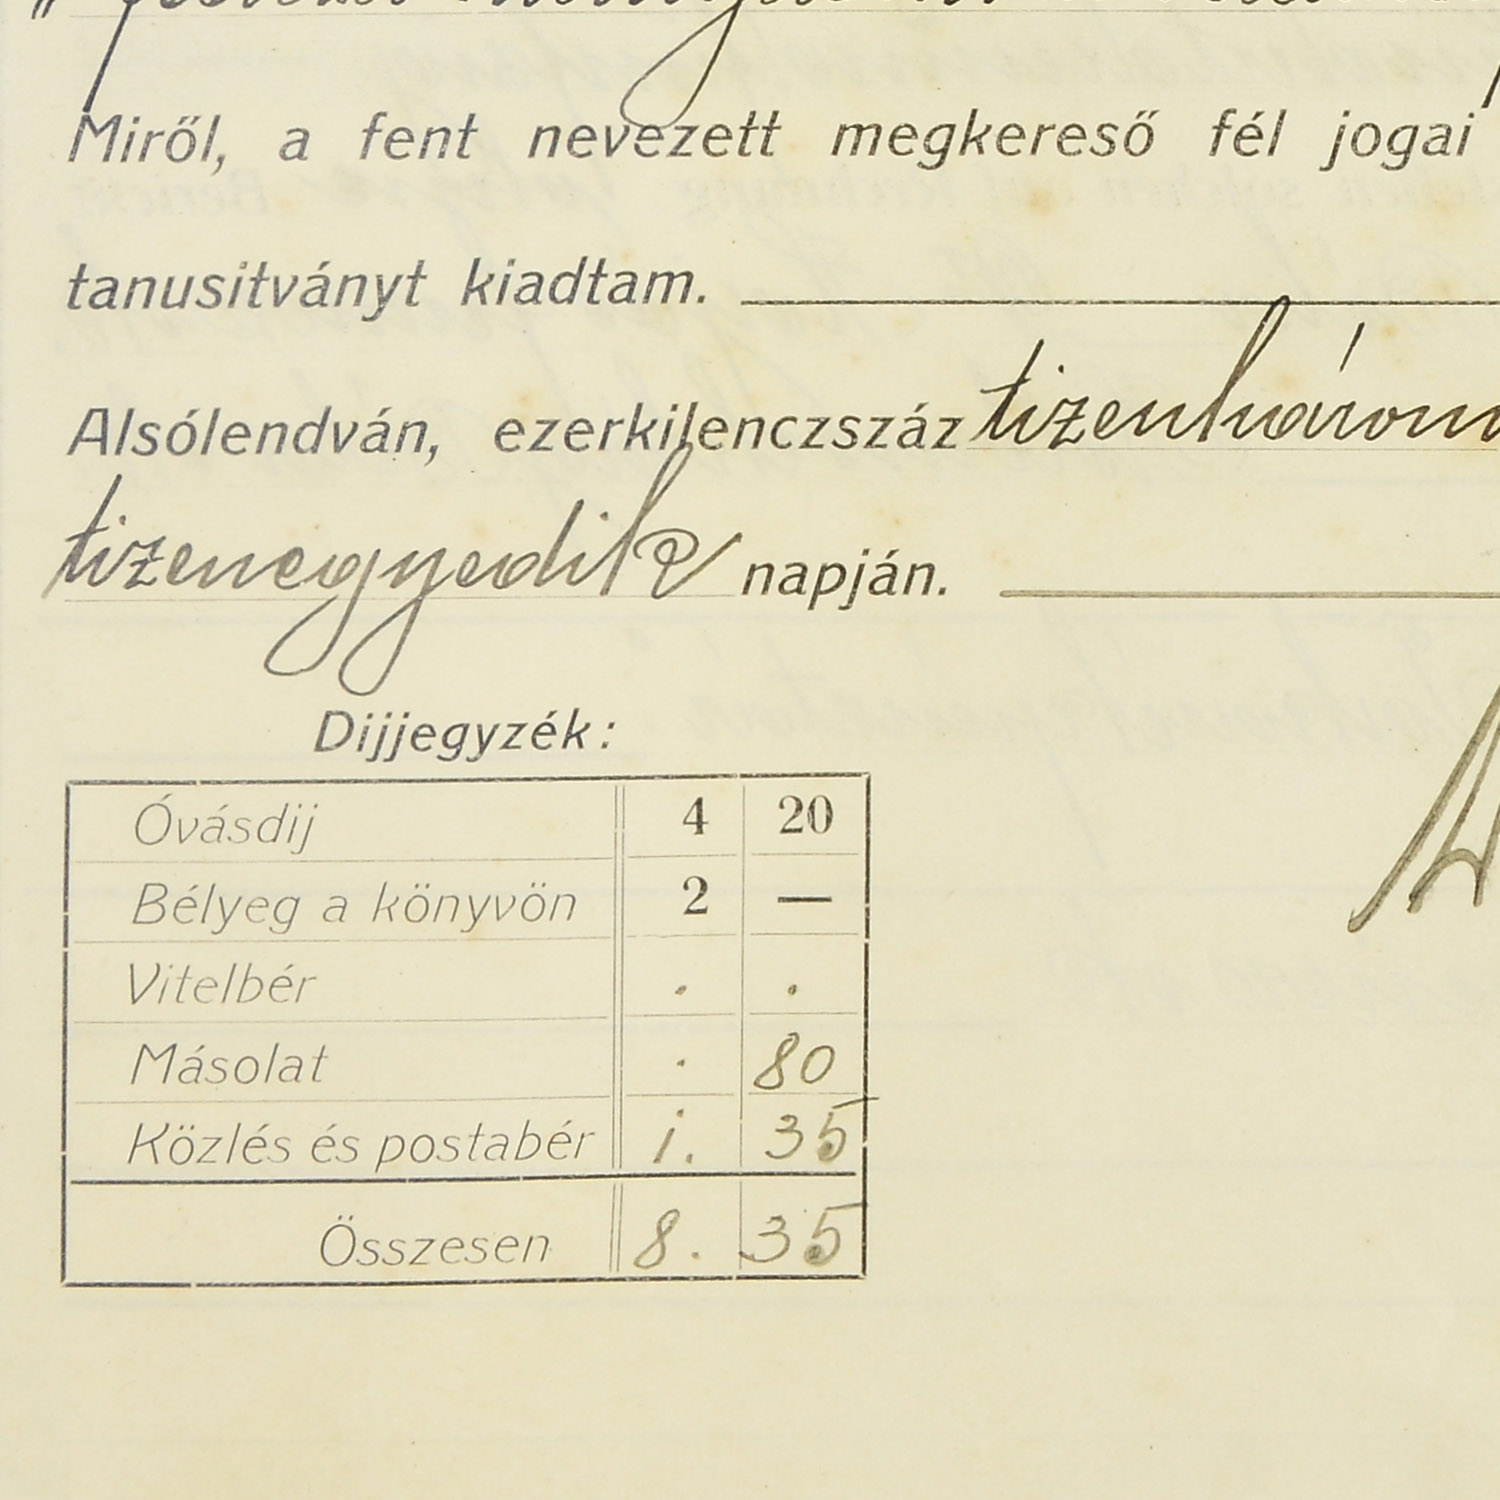 Miről, a fent nevezett megkereső fél jogai
tanusitványt kiadtam.
Alsólendván, ezerkilenczszáz tizenhárom
tizenegyedik napján.
Dijjegyzék:
Óvásdij 4 20
Bélyeg a könyvön 2 —
Vitelbér . .
Másolat . 80
Közlés és postabér 1. 35
Összesen 8. 35